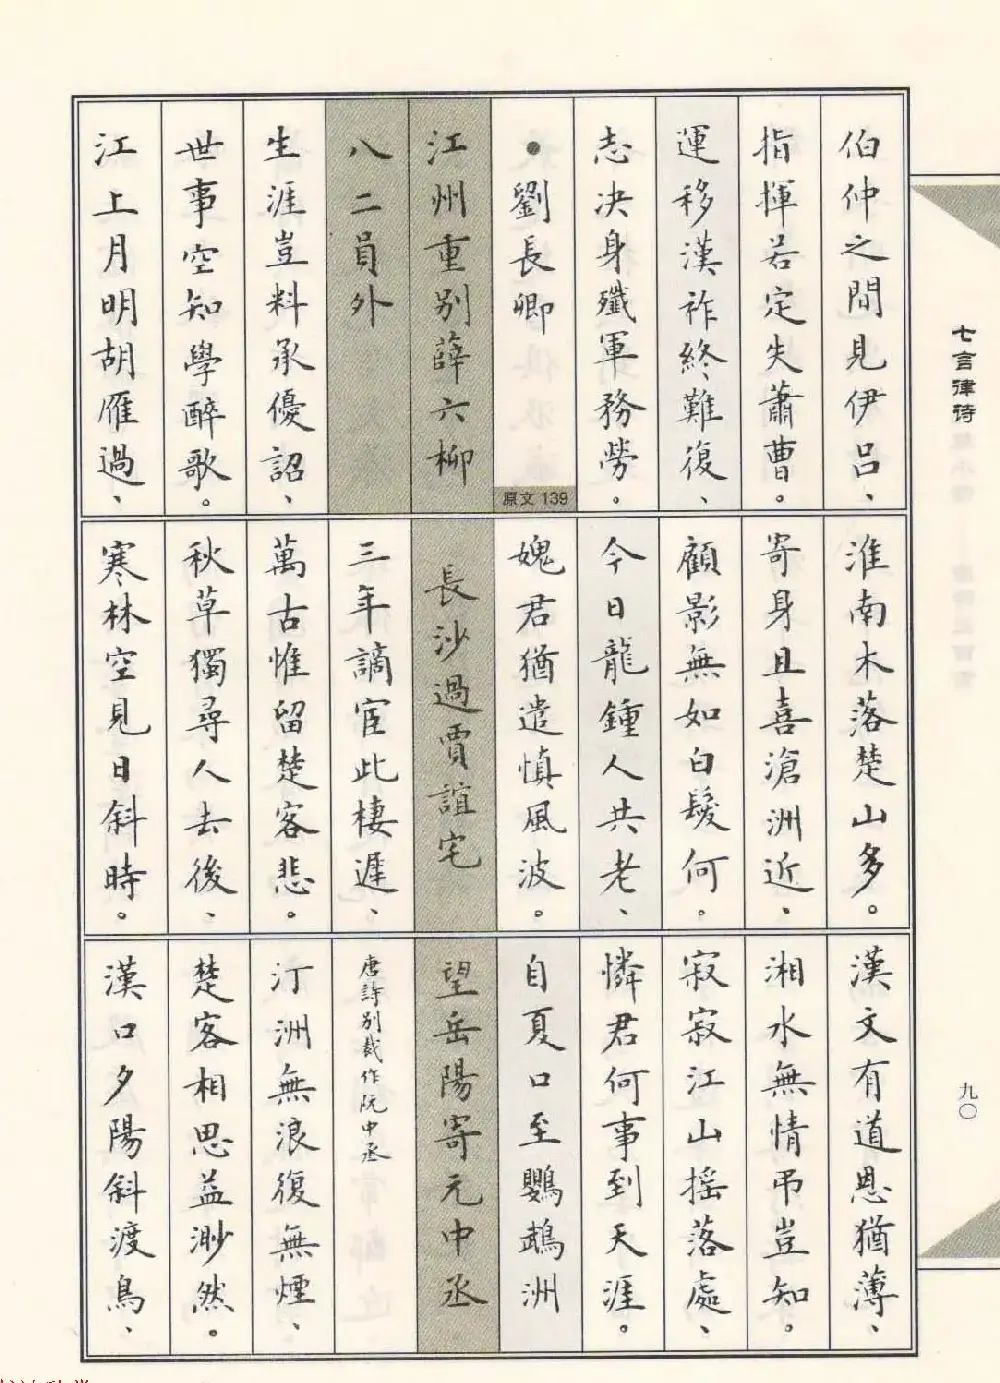 伯仲之間見伊呂、
指揮若定失蕭曹。
運移漢祚終難復、
志决身殲軍務勞。
●劉長卿
原文 139
江州重别薛六柳
八二員外
生涯豈料承優詔、
世事空知學醉歌。
江上月明胡雁過、
淮南木落楚山多。
寄身且喜滄洲近、
顧影無如白髮何。
今日龍鍾人共老、
媿君猶遣慎風波。
長沙過賈誼宅
三年謫宦此棲遲、
萬古惟留楚客悲。
秋草獨尋人去後、
寒林空見日斜時。
漢文有道恩猶薄、
湘水無情弔豈知。
寂寂江山搖落處、
憐君何事到天涯。
自夏口至鸚鵡洲
望岳陽寄元中丞
唐詩别裁作阮中丞
汀洲無浪復無煙、
楚客相思益渺然。
漢口夕陽斜渡鳥、
七言律诗
九〇